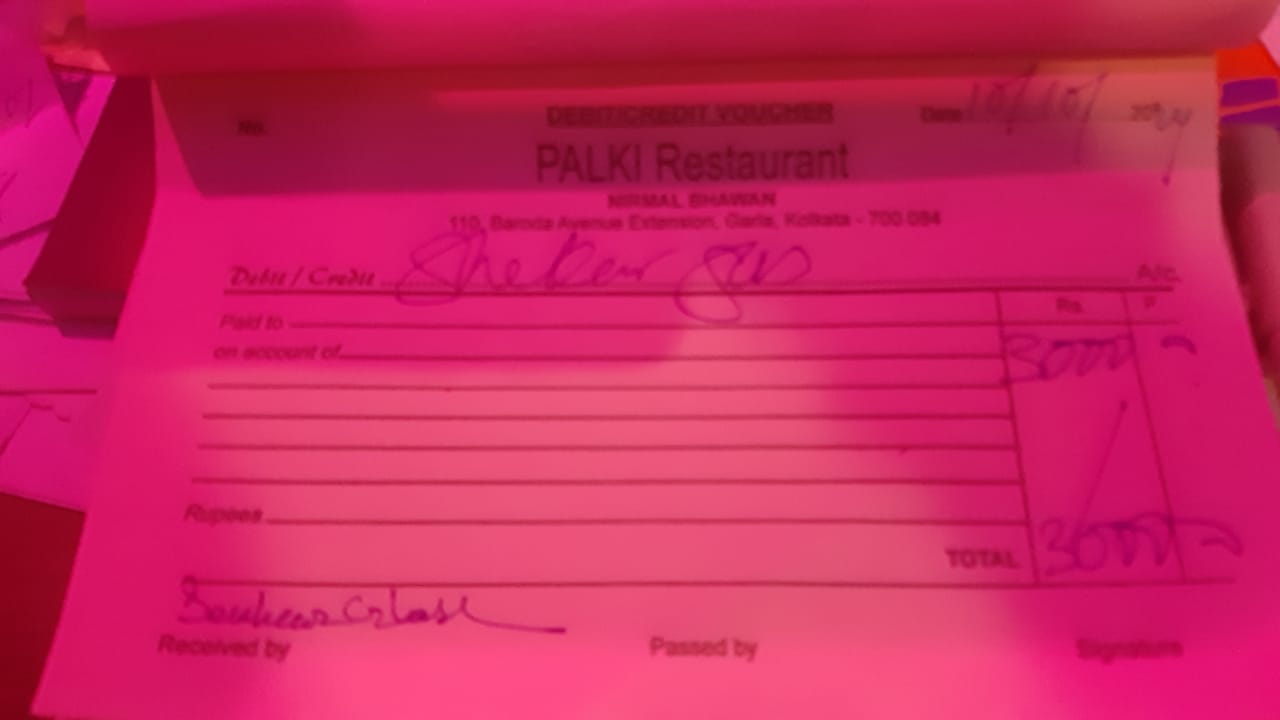 DEBIT/CREDIT VOUCHER
No. Date 10/10/ 2024
PALKI Restaurant
NIRMAL BHAWAN
110, Baroda Avenue Extension, Garia, Kolkata - 700 084
Debit / Credit Shekar gas A/c.
Rs. P.
Paid to
on account of 3000 -
Rupees
TOTAL 3000 -
Received by Passed by Signature